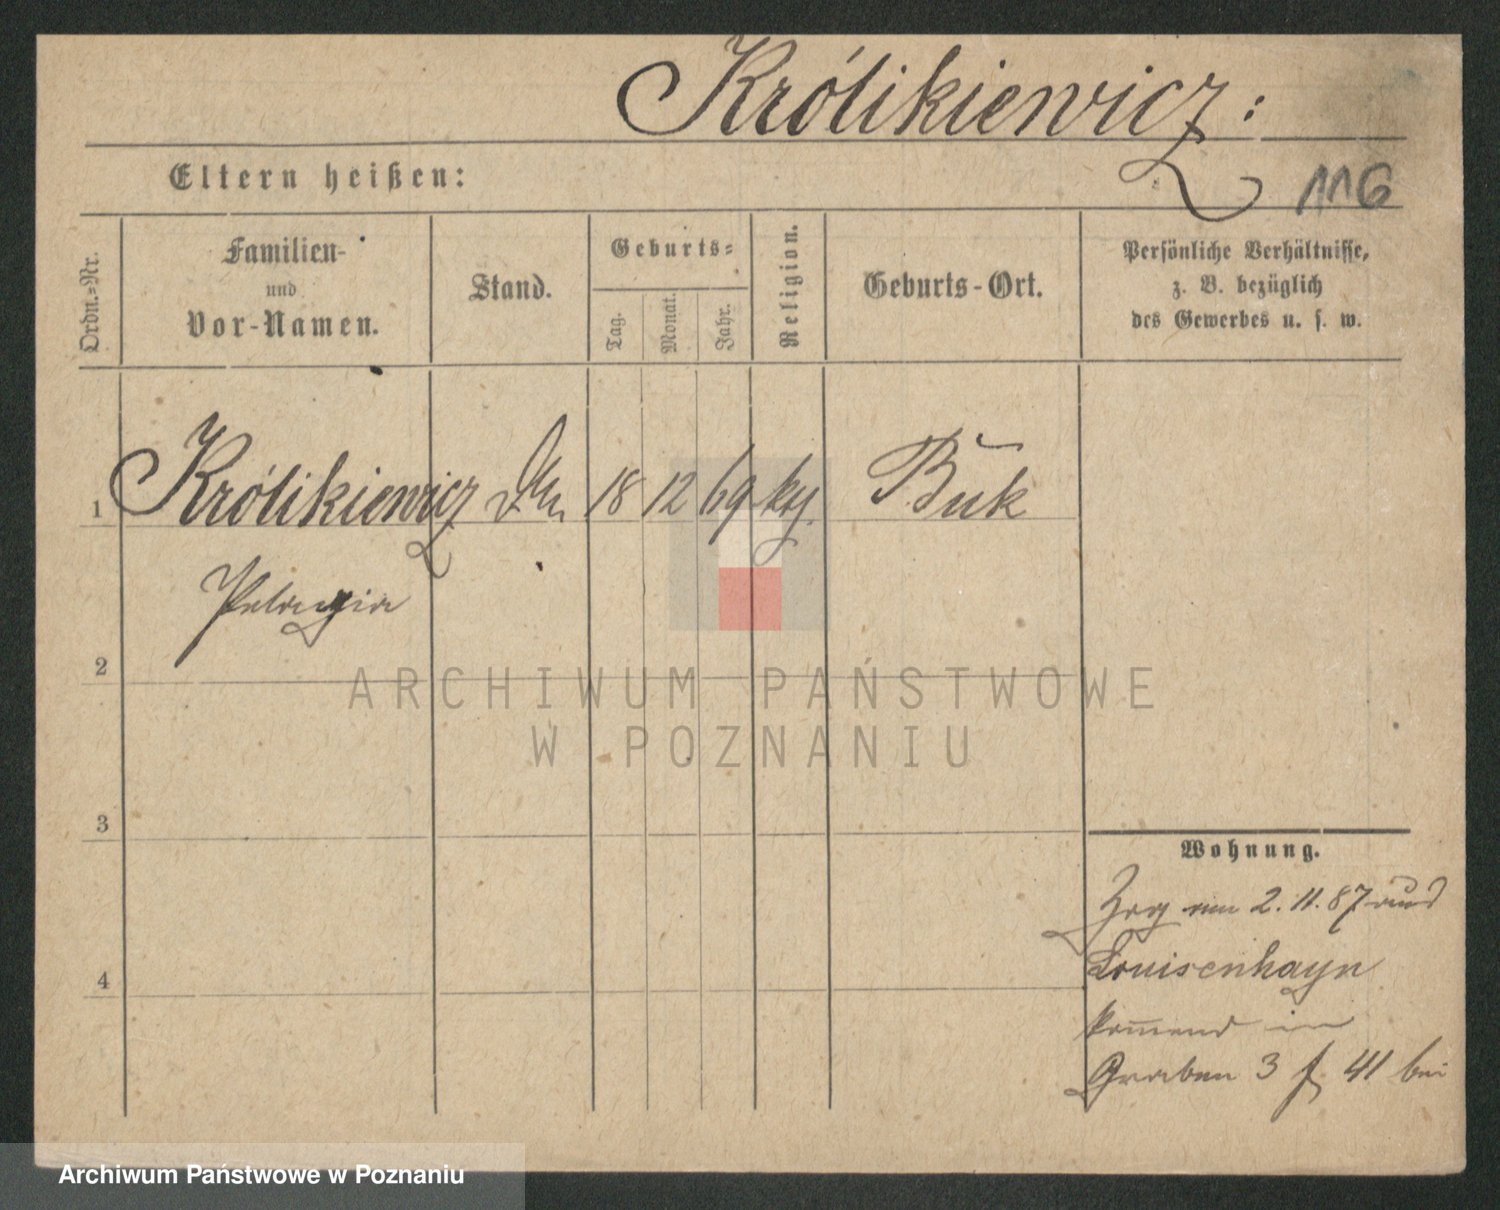 Królikiewicz:
Eltern heißen:
116
Ordn.-Nr.
Familien-
und
Vor-Namen.
Stand.
Geburts-
Tag.
Monat.
Jahr.
Religion.
Geburts-Ort.
Persönliche Verhältnisse,
z. B. bezüglich
des Gewerbes u. s. w.
1 Królikiewicz 18 12 69 Buk
Pelagia
2
3
4
Wohnung.
Zog am 2.11.87 aus
Louisenhayn
komend in
Graben 3 f 41 bei
ARCHIWUM PAŃSTWOWE
W POZNANIU
Archiwum Państwowe w Poznaniu